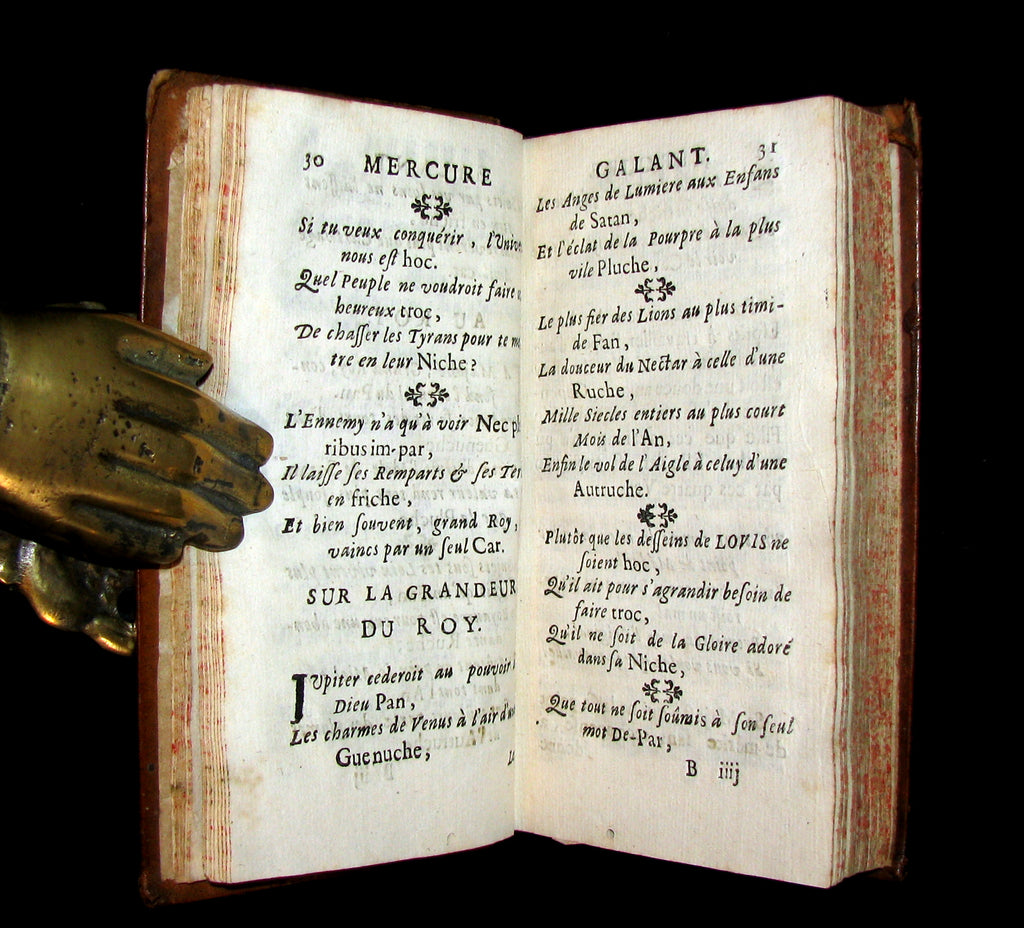 30 MERCURE
Si tu veux conquérir, l'Univ
nous eſt hoc.
Quel Peuple ne voudroit faire u
heureux troc,
De chaſſer les Tyrans pour te m
tre en leur Niche?
L'Ennemy n'a qu'à voir Nec pl
ribus im-par,
Il laiſſe ſes Remparts & ſes Ter
en friche,
Et bien ſouvent, grand Roy,
vaincs par un ſeul Car.
SUR LA GRANDEUR
DU ROY.
Jupiter cederoit au pouvoir
Dieu Pan,
Les charmes de Venus à l'air d'un
Guenuche,
GALANT. 31
Les Anges de Lumiere aux Enfans
de Satan,
Et l'éclat de la Pourpre à la plus
vile Pluche,
Le plus fier des Lions au plus timi-
de Fan,
La douceur du Nectar à celle d'une
Ruche,
Mille Siecles entiers au plus court
Mois de l'An,
Enfin le vol de l'Aigle à celuy d'une
Autruche.
Plutôt que les deſſeins de LOVIS ne
ſoient hoc,
Qu'il ait pour s'agrandir beſoin de
faire troc,
Qu'il ne ſoit de la Gloire adoré
dans ſa Niche,
Que tout ne ſoit ſoûmis à ſon ſeul
mot De-Par,
B iiij